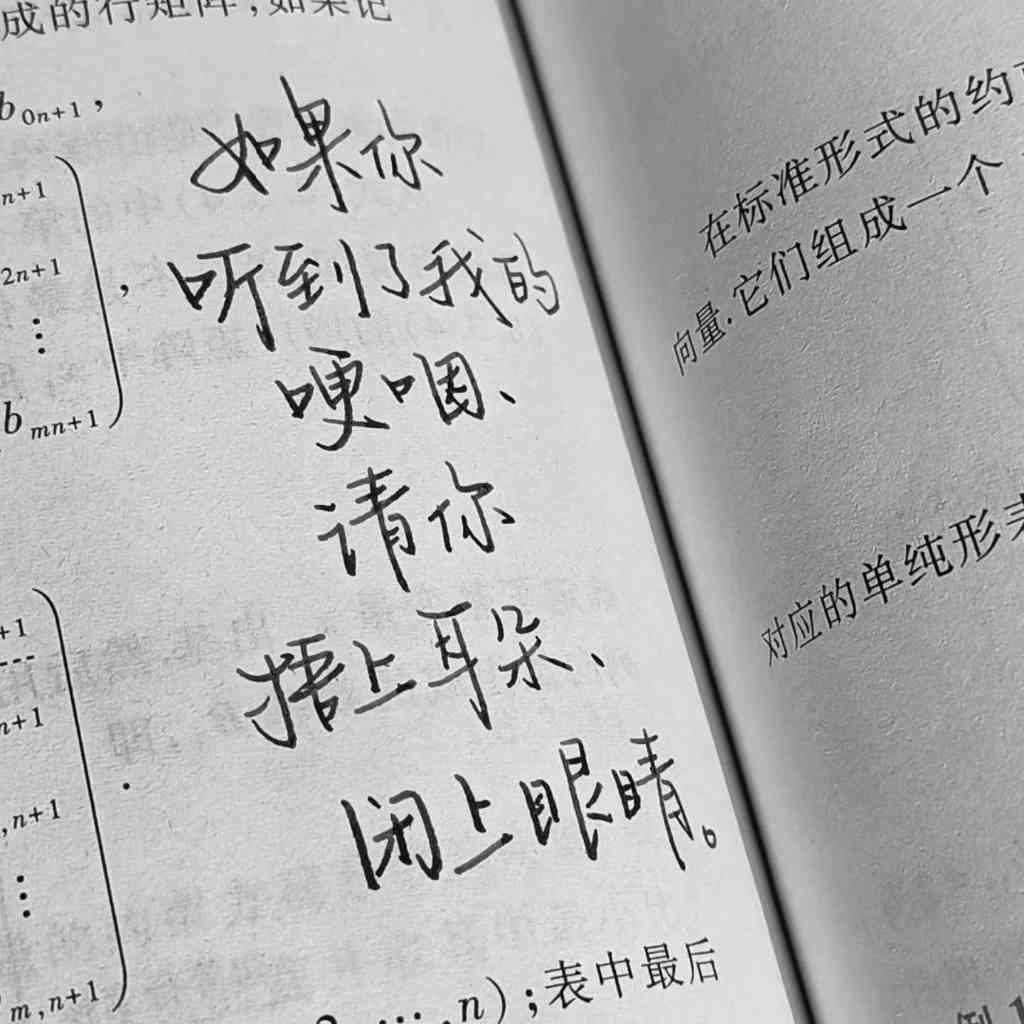 成的行矩阵,如果记
b 0n+1 ,
n+1
2n+1
⋮ ,
b mn+1
如果你
听到了我的
哽咽、
请你
捂上耳朵、
闭上眼睛。
+1
n+1
,n+1
⋮ .
m,n+1
⋯,n);表中最后
在标准形式的约
向量.它们组成一个
对应的单纯形表
例 1